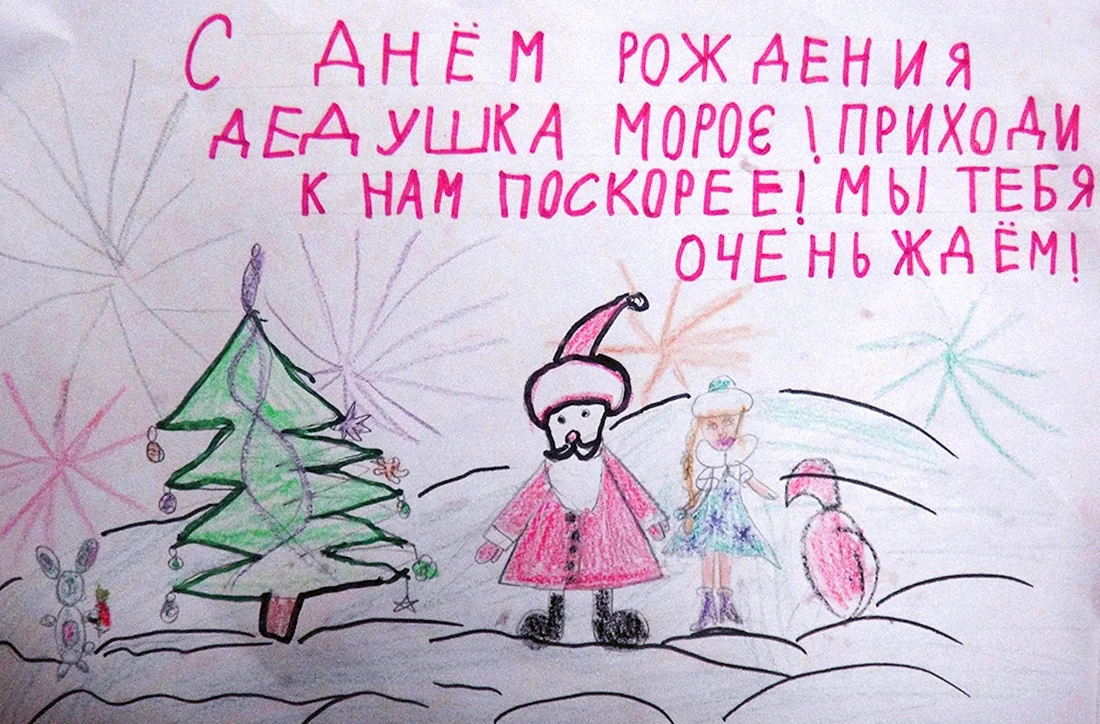 С ДНЁМ РОЖДЕНИЯ
ДЕДУШКА МОРОЄ! ПРИХОДИ
К НАМ ПОСКОРЕЕ! МЫ ТЕБЯ
ОЧЕНЬ ЖДЁМ!